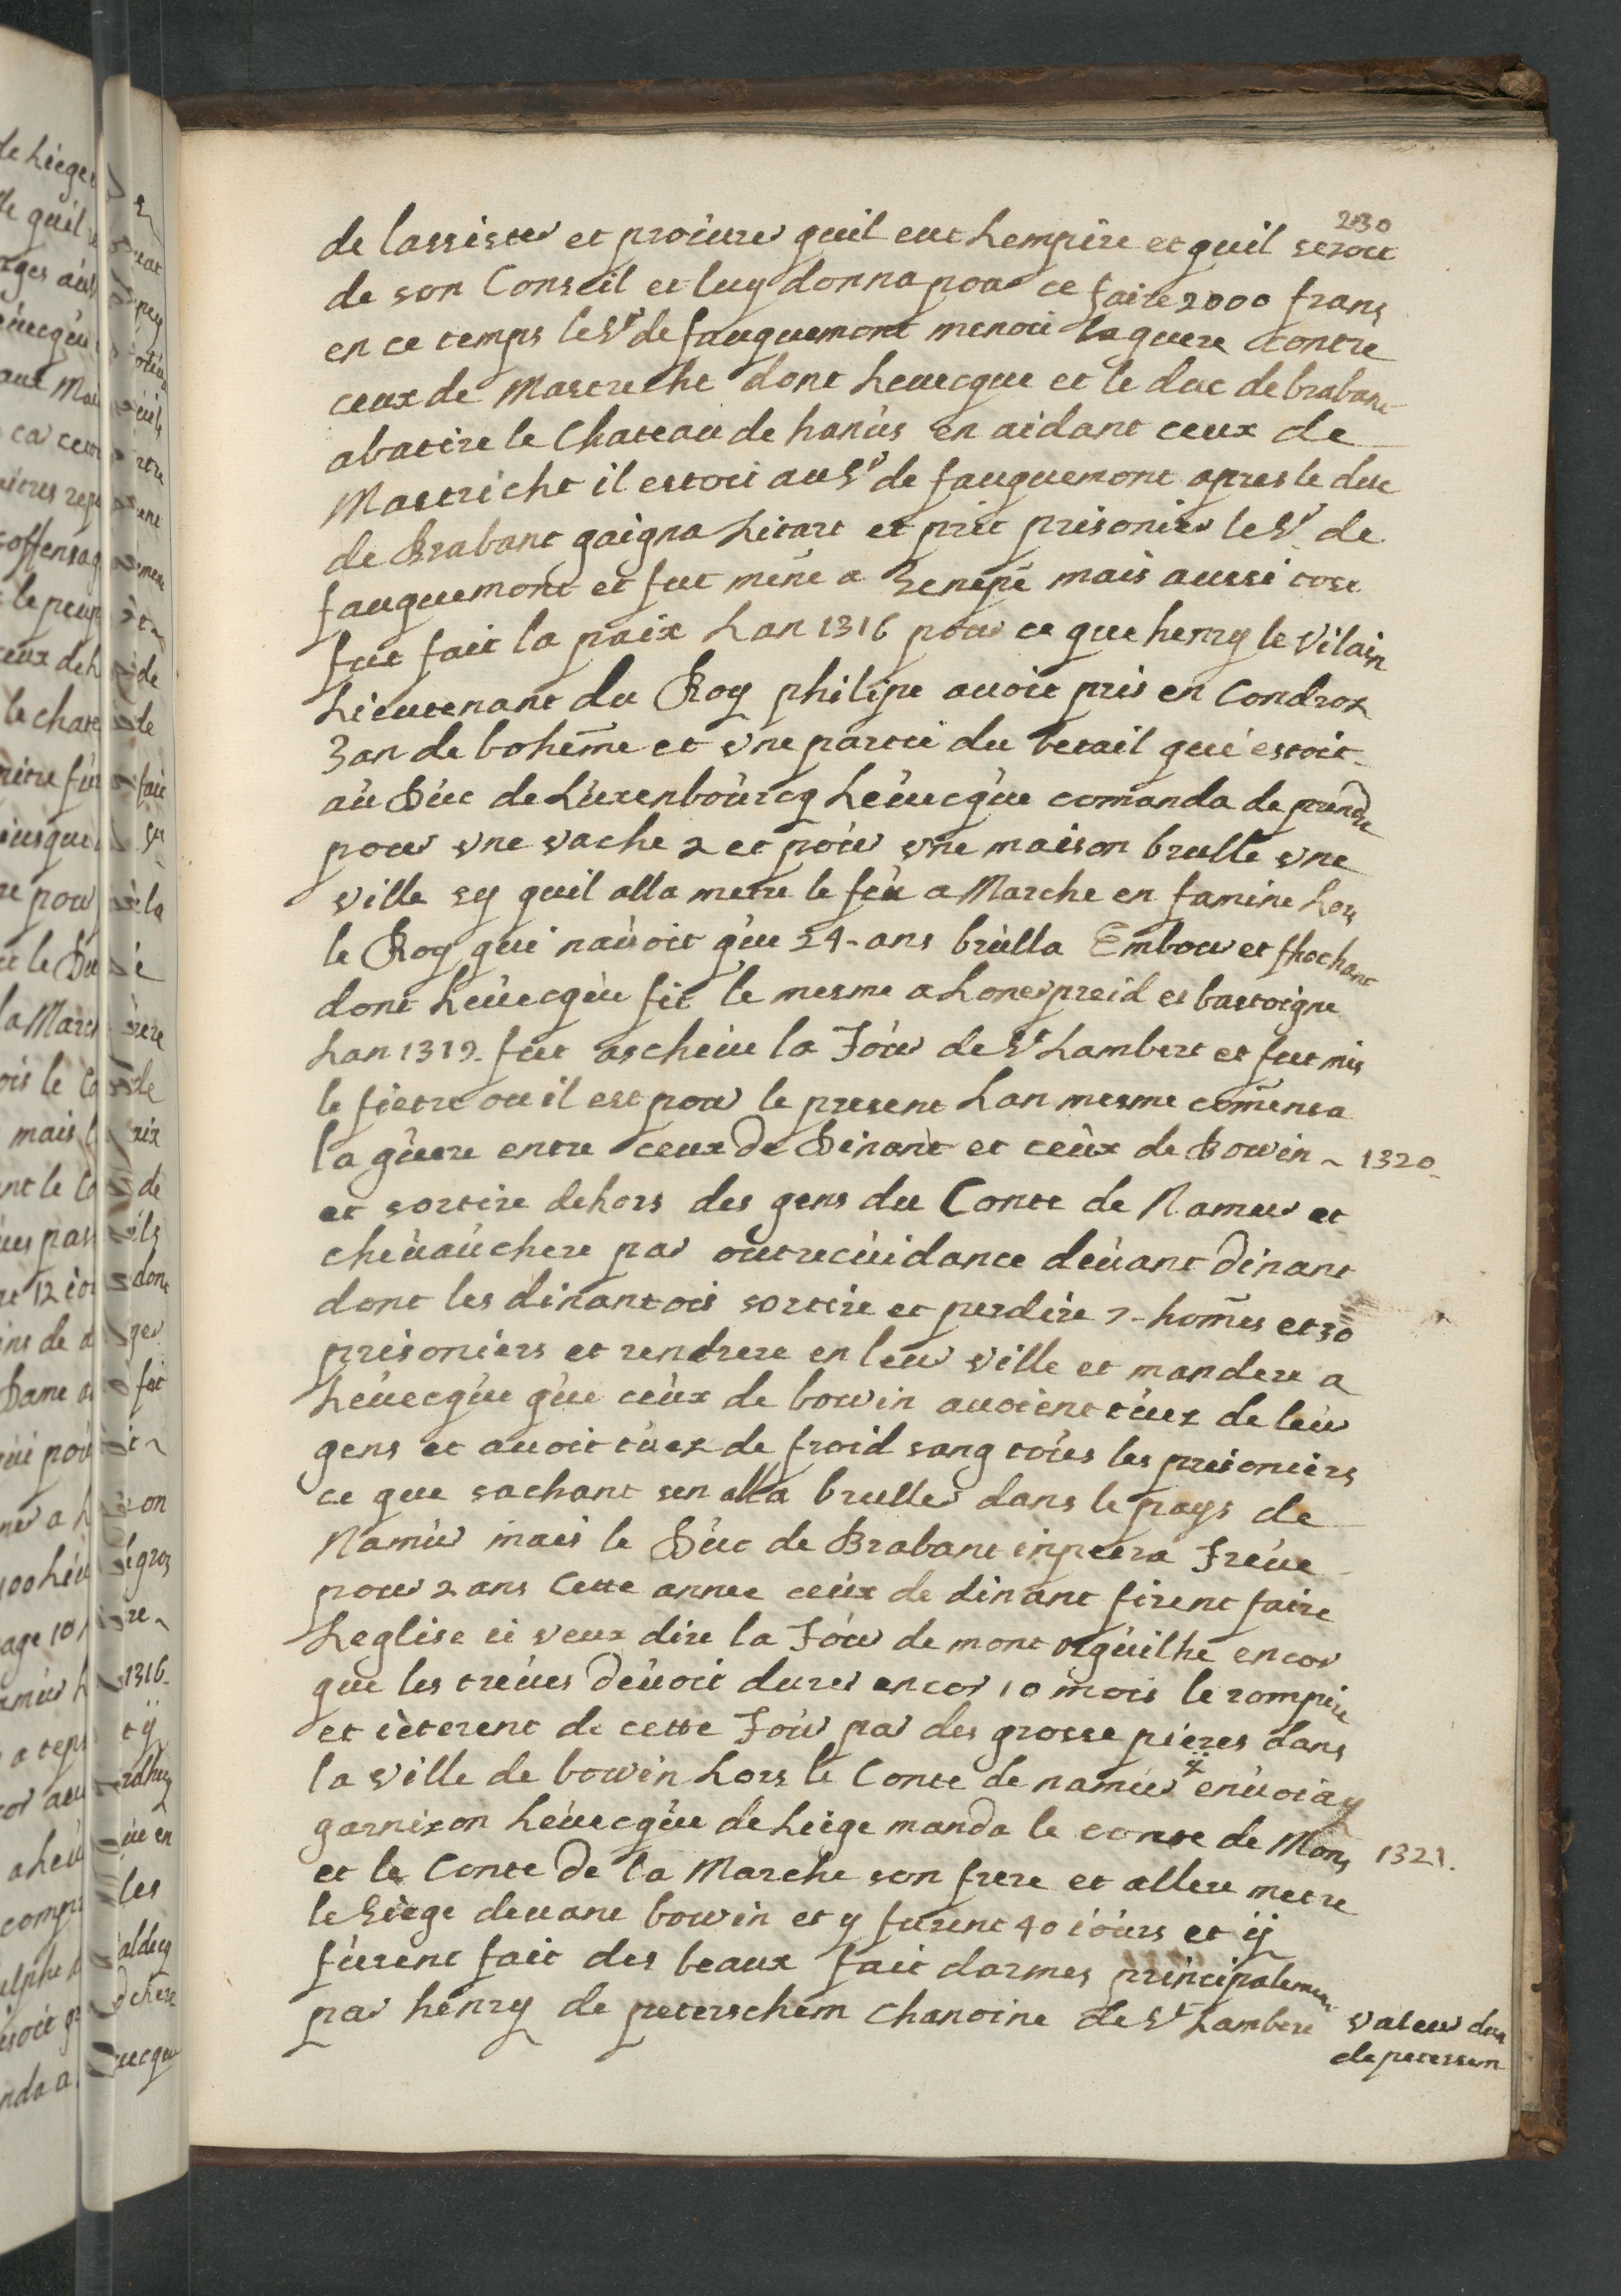 230
de lassister et procurer quil eut Lempire et quil seroit
de son Conseil et luy donna pour ce faire 2000 frans
en ce temps le Sr de fauquemont menoit la guere contre
ceux de Mastrecht dont Leuecque et le duc de brabant
abatire le Chateau de hanùs en aidant ceux de
Mastricht il estoit au Sr de fauquemont apres le duc
de Brabant gaigna Litart et prit prisonier le Sr de
fauquemont et fut mene a Genepe mais aussi tost
fut fait la paix Lan 1316 pour ce que henry le Vilain
Lieutenant du Roy philipe auoit pris en Condroz
Jan de boheme et vne partie du betail qui estoit
au Duc de Luxenbourcq Leuecque comanda de prendre
pour vne vache 2 et pour vne maison brulle vne
ville sy quil alla metre le feu a Marche en famine Lors
le Roy qui nauoit que 24 ans brulla Embour et
dont Leuecque fit le mesme a Lonespreid et bastoigne
Lan 1319 fut ascheue la Tour de St Lambert et fut mis
le fietre ou il est pour le present Lan mesme comensa
la guere entre ceux de Dinant et ceux de Bowin ~ 1320
et sortire dehors des gens du Conte de Namur et
cheuauchere par outrecuidance deuant dinant
dont les dinantois sortire et perdire 7 homes et 30
prisoniers et rendrere en leur ville et mandere a
Leuecque que ceux de bowin auoient tuez de leur
gens et auoit tuez de froid sang tous les prisoniers
ce que sachant sen alla bruller dans le pays de
Namur mais le Duc de Brabant inpetra Treue
pour 2 ans Cette annee ceux de dinant firent faire
Leglise ie veux dire la Tour de mont orguilhe encor
que les treues deuoit durer encor 10 mois le rompire
et ieterent de cette Tour par des grosse pieres dans
la ville de bowin Lors le Conte de namur enuoia y
garnixon Leuecque de Liege manda le conte de Mons 1321.
et le Conte de la Marche son frere et allere metre
le Siege deuant bowin et y furent 40 iours et ij
furent fait des beaux fait darmes principalement
par henry de peterschem Chanoine de St Lambert
Valeur dun
de peterssem